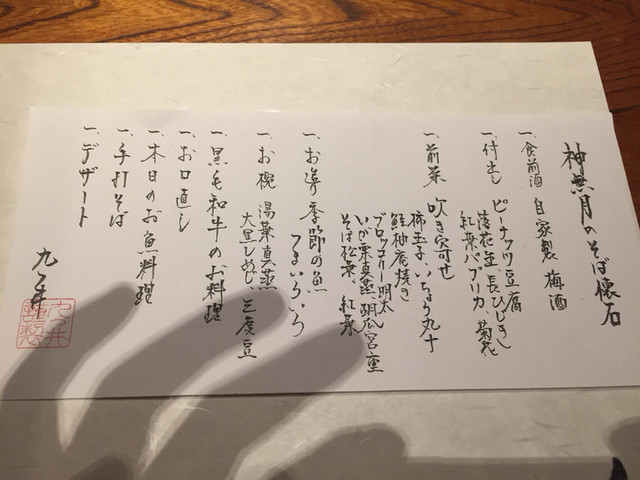 神無月のそば懐石
一、食前酒 自家製 梅酒
一、付出し ピーナッツ豆腐
落花生 長ひじき
紅葉パプリカ、菊花
一、前菜 吹き寄せ
柿玉子、いちょう丸十
鮭柚庵焼き
ブロッコリー明太
いが栗真蒸、胡瓜宮座
そば松葉、紅葉
一、お造り 季節の魚
つまいろいろ
一、お椀 湯葉真蒸
大黒しめじ、三度豆
一、黒毛和牛のお料理
一、お口直し
一、本日のお魚料理
一、手打そば
一、デザート
九つ井
九つ井